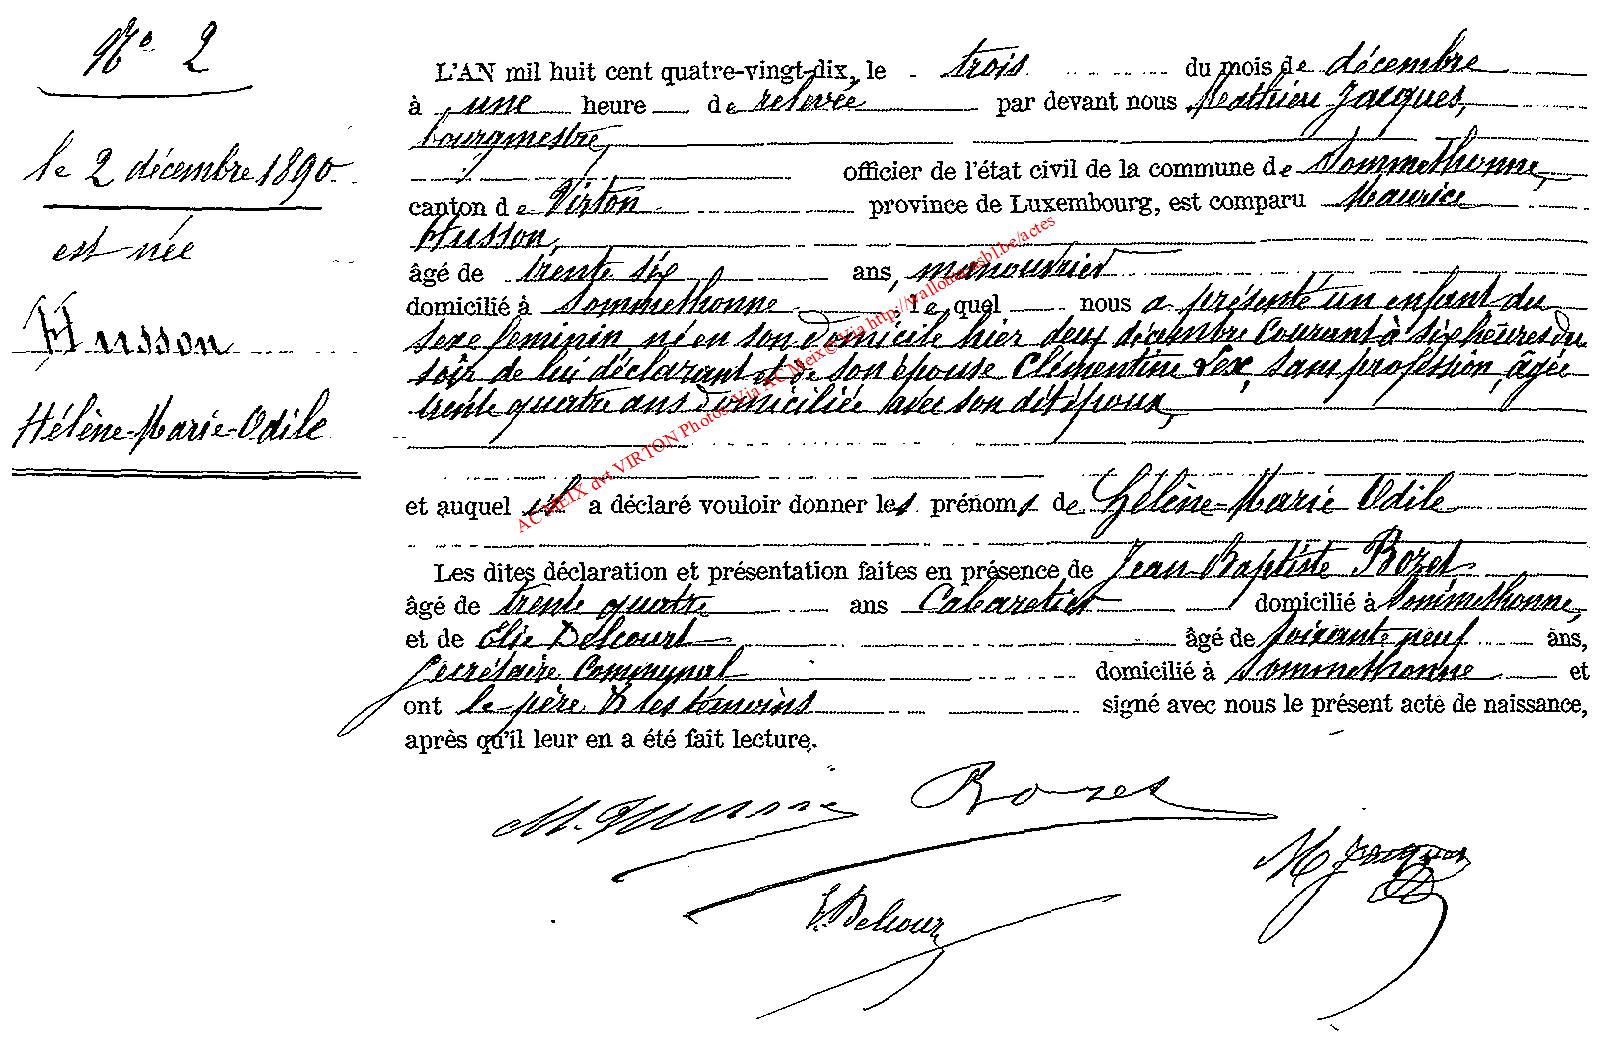 N° 2
le 2 décembre 1890
est née
Husson
Hélène-Marie-Odile
L'AN mil huit cent quatre-vingt-dix, le trois du mois de décembre
à une heure de relevée par devant nous Mathieu Jacques,
bourgmestre,
officier de l'état civil de la commune de Sommethonne,
canton de Virton province de Luxembourg, est comparu Maurice
Husson,
âgé de trente six ans, manouvrier
domicilié à Sommethonne, le quel nous a présenté un enfant du
sexe feminin né en son domicile hier deux décembre courant à six heures du
soir de lui déclarant et de son épouse Clémentine Lex, sans profession, âgée
trente quatre ans domiciliée avec son dit époux,
et auquel il a déclaré vouloir donner les prénoms de Hélène-Marie Odile
Les dites déclaration et présentation faites en présence de Jean-Baptiste Rozet,
âgé de trente quatre ans Cabaretier domicilié à Sommethonne,
et de Elie Delcourt âgé de soixante neuf ans,
Secrétaire Communal domicilié à Sommethonne et
ont le père & les témoins signé avec nous le présent acte de naissance,
après qu'il leur en a été fait lecture.
Rozet
M Jacques
E. Delcour
AC MEIX dvt VIRTON Photos Via AC Meix© Via http://wallonia.asbl.be/actes